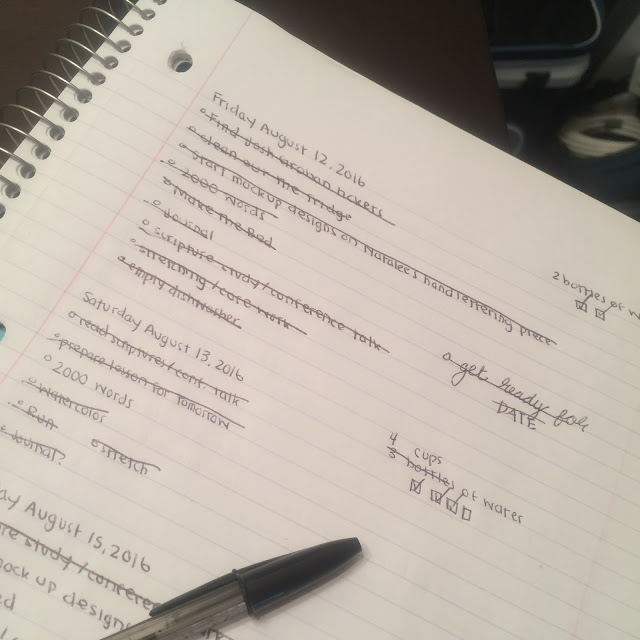 Friday August 12, 2016
Find Josh Groban tickets
clean out the fridge
Start mockup designs on Natalee's hand lettering piece
2000 words
make the bed
Journal
scripture study/conference talk
stretching/core work
empty dishwasher
2 bottles of w
Saturday August 13, 2016
read scripture/conf talk
prepare lesson for tomorrow
2000 words
watercolor
Run
Journal
stretch
get ready for
DATE
4 cups
3 bottles of water
ay August 15, 2016
mock up design